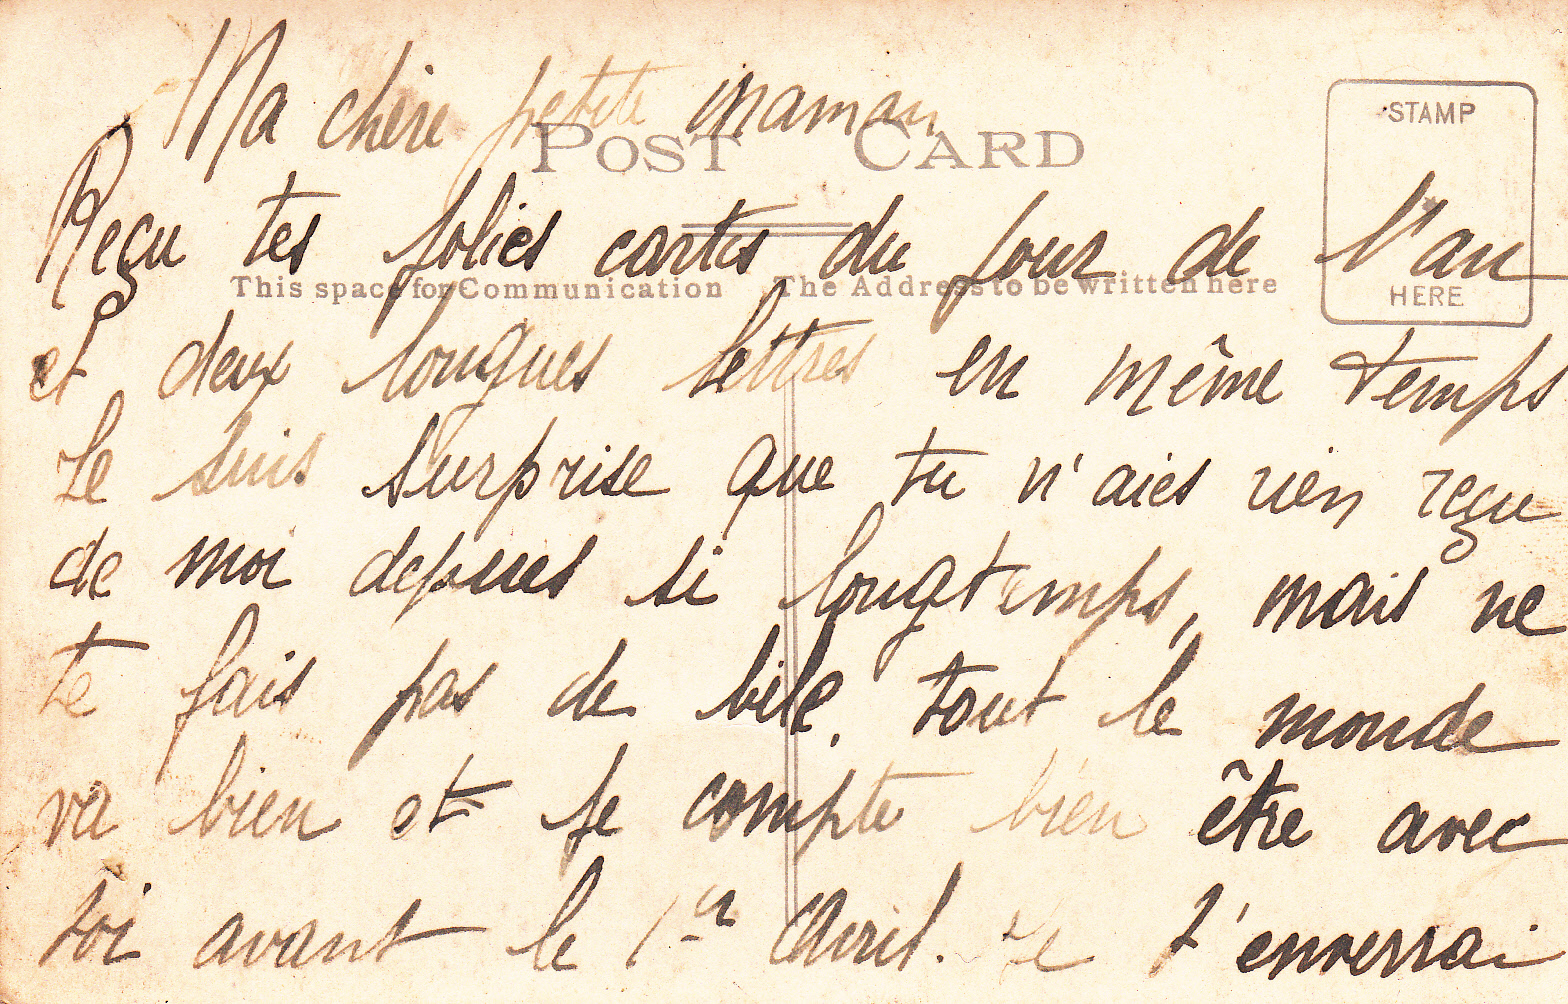 Ma chère petite maman
POST CARD
STAMP
HERE
Reçu tes jolies cartes du jour de l'an
This space for Communication The Address to be written here
et deux longues lettres en même temps
Je suis surprise que tu n'aies rien reçu
de moi depuis si longtemps, mais ne
te fais pas de bile. tout le monde
va bien et je compte bien être avec
toi avant le 1er Avril. Je t'enverrai